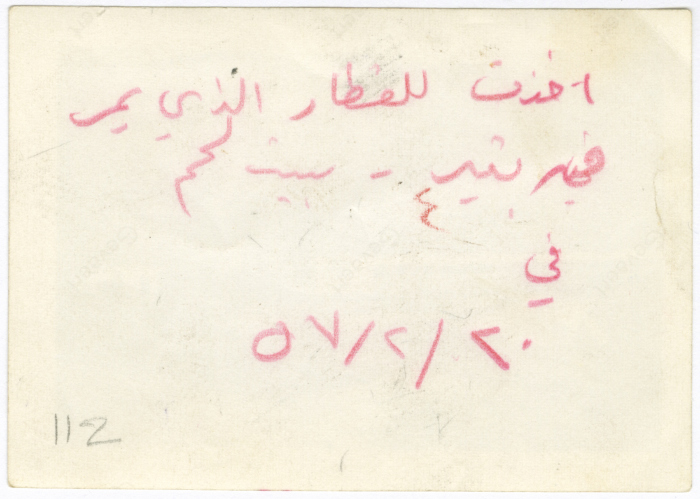 اخذت للقطار الذي يمر
في بتير - بيت لحم
٤
في
٥٧/٢/٢٠
112